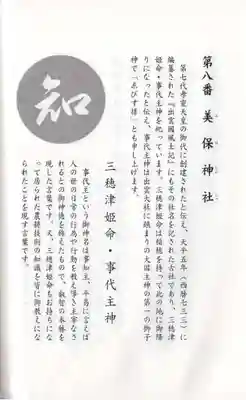 第八番 美保神社
第七代孝霊天皇の御代に創建されたと伝え、天平五年(西暦七三三)に
編纂された『出雲國風土記』にもその社名を記された古社であり、三穂津
姫命・事代主神を祀っています。三穂津姫命は稲穂を持って此の地に御降
りになったと伝え、事代主神は出雲大社に鎮まりの大國主神の第一の御子
神で「ゑびす様」とも申しあげます。
三穂津姫命・事代主神
知
事代主という御神名は事知主、平易に言えば
人の世の日常の行為や行動を教え導き主宰なさ
れるとの御神徳を称えたもので、叡智の本体を
現した言葉です。又、三穂津姫命もお持ちにな
って居られた農耕技術の知識を皆に御教えにな
られたことを現す言葉です。